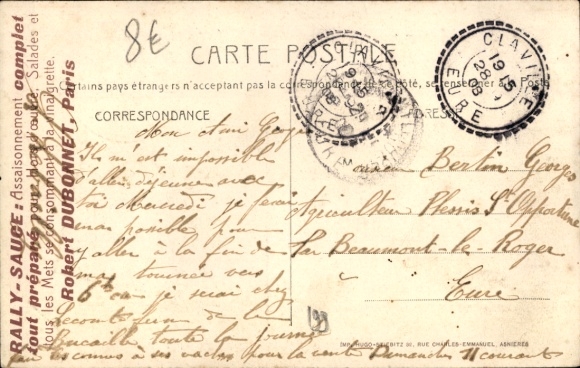 8€
CARTE POSTALE
Certains pays étrangers n'acceptant pas la correspondance se renseigner à la Poste
CORRESPONDANCE
Mon Ami Georges
Il m'est impossible
d'aller déjeuner avec
toi mercredi je ferai
mon possible pour
y aller à la fin de
ma tournée vers
6h ou je serai chez
Lecomte de la
Bucaille toute la journée
à ses vaches pour la vente Dimanche 11 courant
Monsieur Bertin Georges
Agriculteur Plessis Ste Opportune
Par Beaumont-le-Roger
à
Eure
CLAVILLE
9 15
28
EURE
RALLY-SAUCE: Assaisonnement complet
tout préparé pour Hors-d'œuvre, Salades et
tous les Mets se consommant à la Vinaigrette.
Robert DUBONNET, Paris
IMP. HUGO-BREIBITZ 90, RUE CHARLES-EMMANUEL, ASNIÈRES